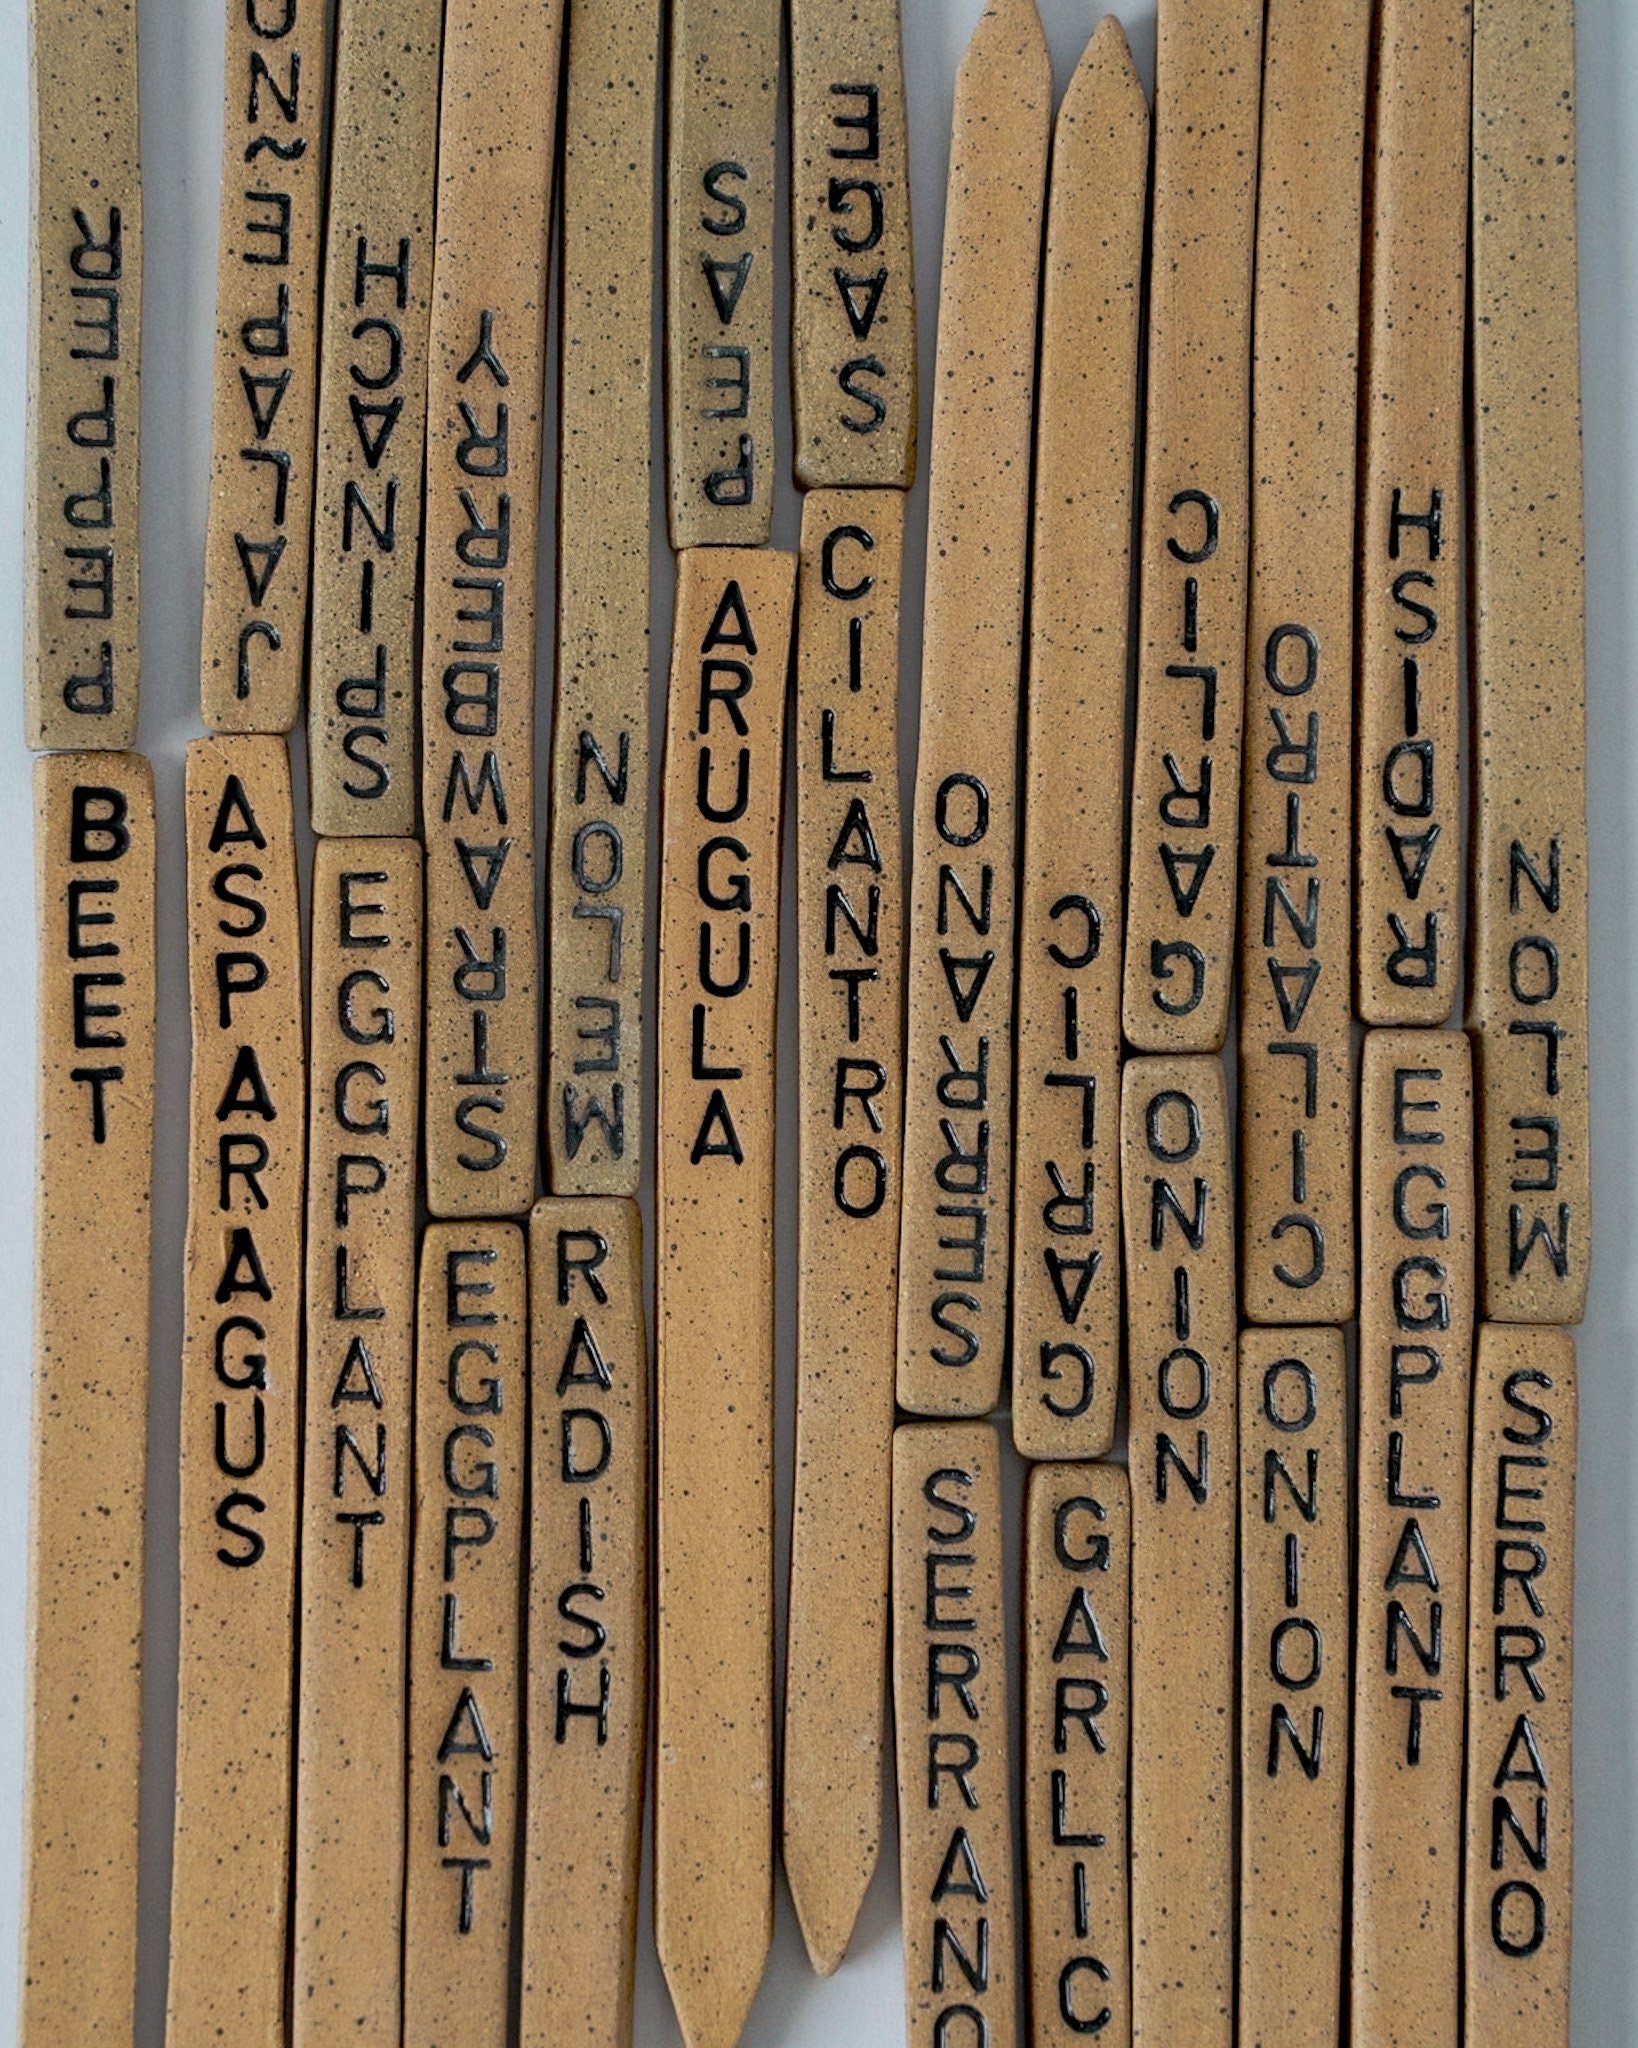 PEPPER
BEET
JALAPEÑO
ASPARAGUS
SPINACH
EGGPLANT
STRAWBERRY
EGGPLANT
MELON
RADISH
PEAS
ARUGULA
SAGE
CILANTRO
SERRANO
SERRANO
GARLIC
GARLIC
GARLIC
ONION
CILANTRO
ONION
RADISH
EGGPLANT
MELON
SERRANO